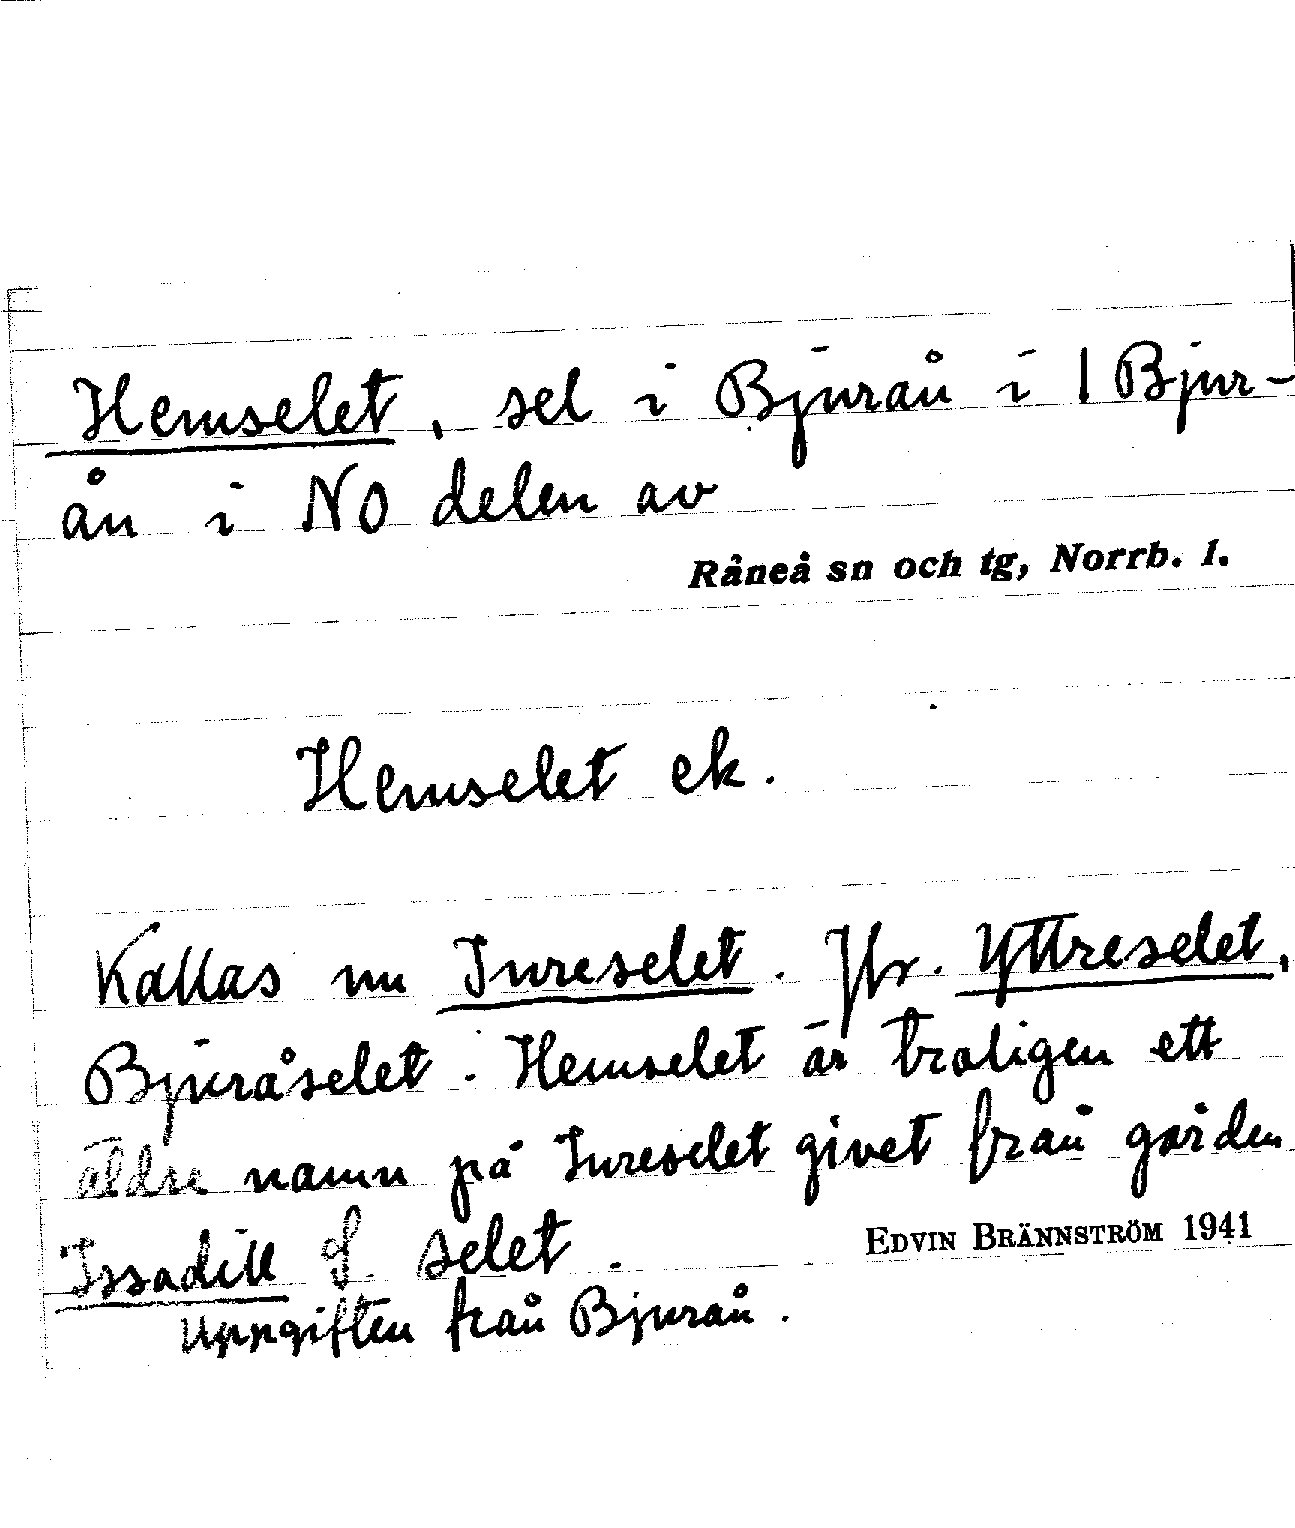 Hemselet, sel i Bjurån i 1 Bjur-
ån i NO delen av
Råneå sn och tg, Norrb. l.
Hemselet ek.
Kallas nu Inreselet. Jfr. Yttreselet,
Bjuråselet. Hemselet är troligen ett
äldre namn på Inreselet givet från gården
Issadill selet.
EDVIN BRÄNNSTRÖM 1941
Uppgiften från Bjurån.